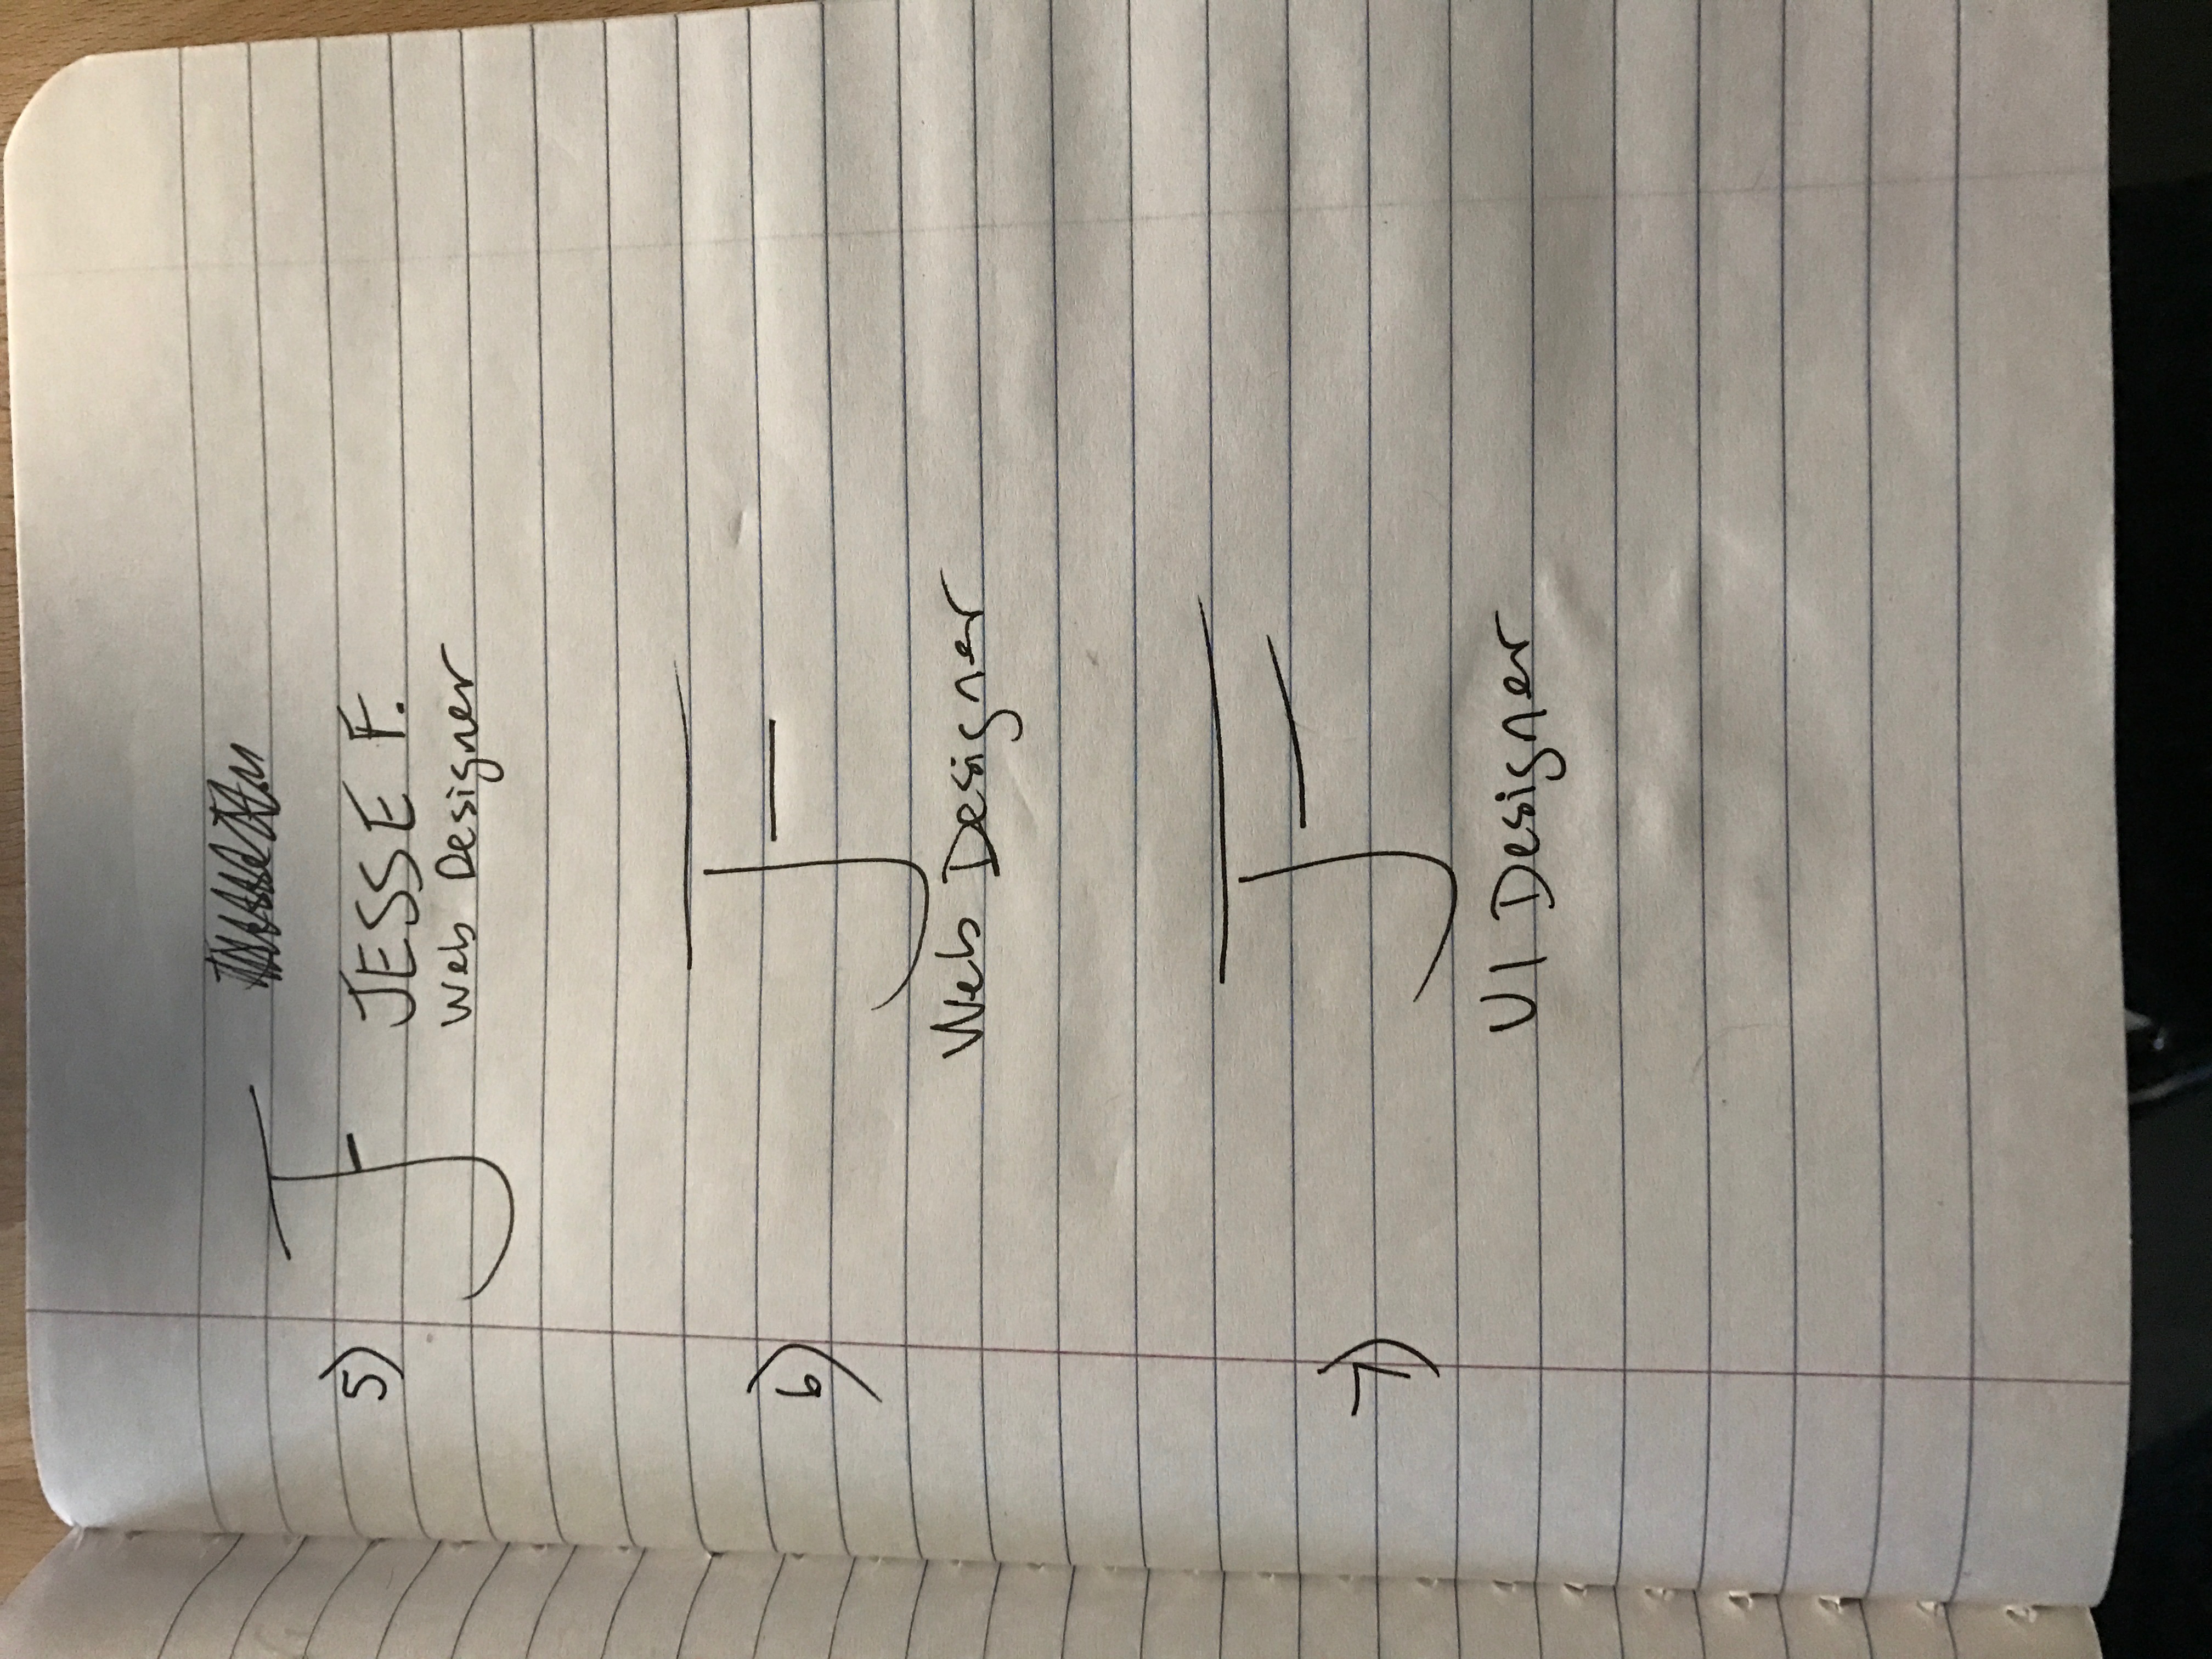 5)
JF
JESSE F.
Web Designer
6)
JF
Web Designer
7)
JF
UI Designer